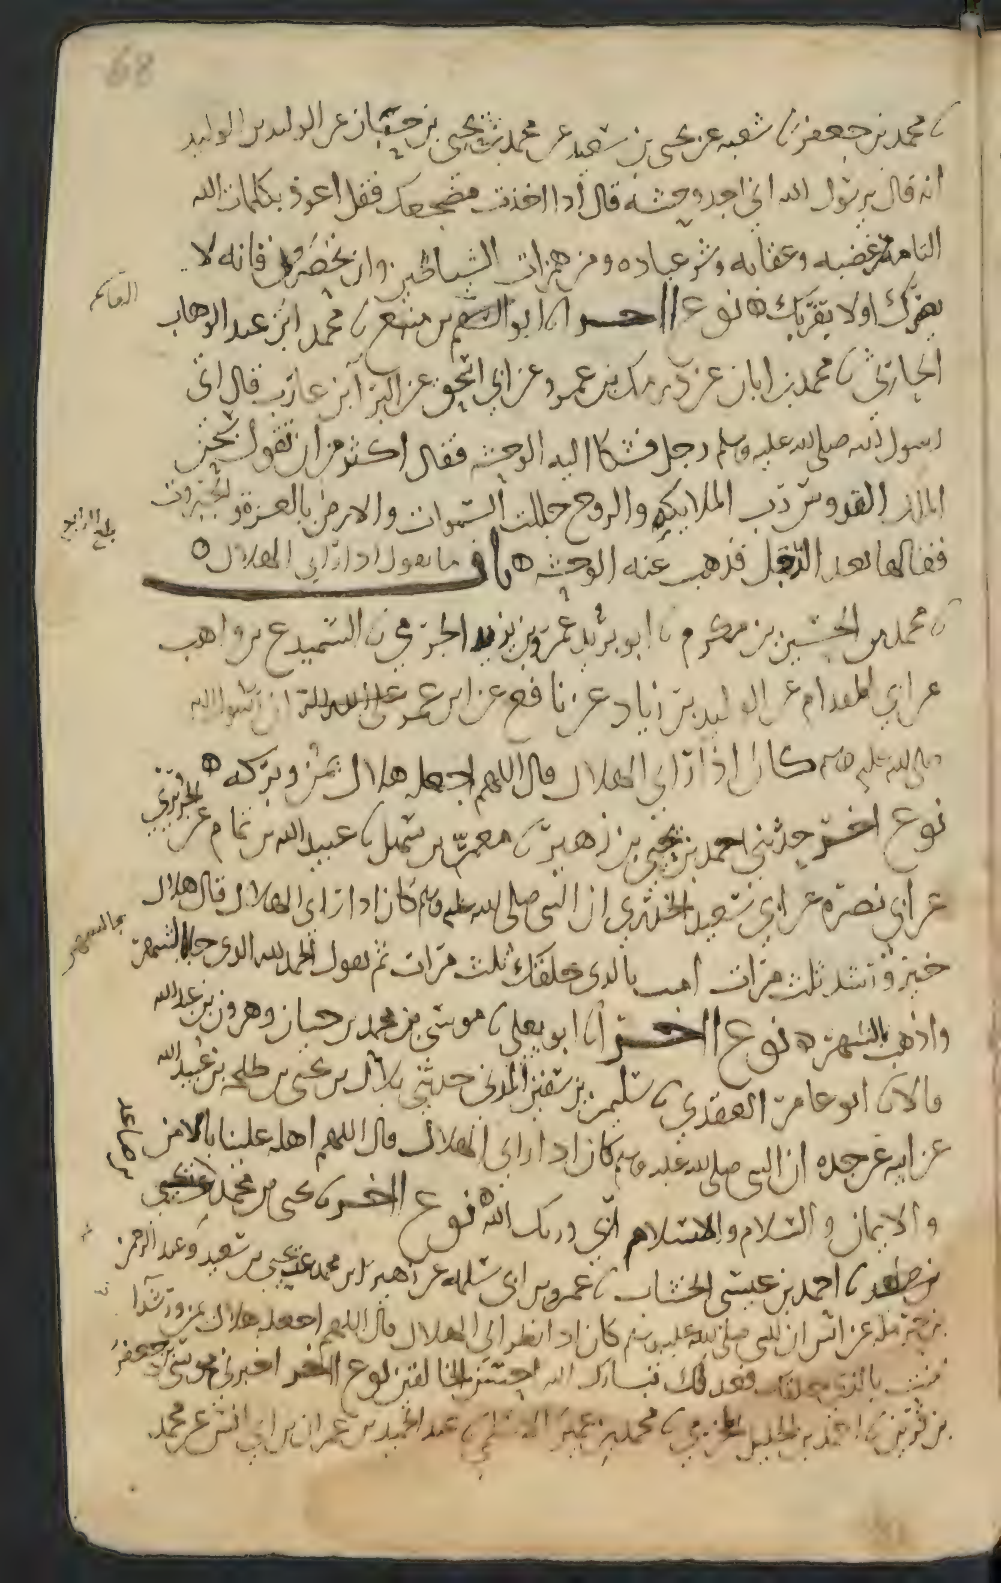 68
ثنا محمد بن جعفر ثنا شعبه عن يحيى بن سعيد عن محمد بن يحيى بن حبان عن الوليد بن الوليد
انه قال يرسول الله اني اجد وحشه قال اذا اخذت مضجعك فقل اعوذ بكلمات الله
التامه من غضبه وعقابه وشر عباده ومن همزات الشياطين وان يحضرون فانه لا
يضرك او لا يقربك ه نوع اخر انا ابو القسم بن منيع ثنا محمد ابن عبد الوهاب
القاسم
الحارثي ثنا محمد بن ابان عن درمك بن عمرو عن ابي اسحق عن البرا بن عازب قال اتى
رسول الله صلى الله عليه وسلم رجل فشكا اليه الوحشه فقال اكثر من ان تقول سبحن
الملك القدوس رب الملايكه والروح جللت السموات والارض بالعزة والجبروت
فقالها الرجل فذهب عنه الوحشه ه باب ما يقول اذا راى الهلال ه
ثنا محمد بن الحسين بن مكرم ثنا ابو بريد عمرو بن يزيد الجرمي ثنا السميدع بن واهب
عن ابي المقدام عن الوليد بن زياد عن نافع عن ابن عمر ان رسول الله
صلى الله عليه وسلم كان اذا راى الهلال قال اللهم اجعله هلال يمن وبركه ه
نوع اخر حدثني احمد بن يحيى بن زهير ثنا معمر بن سهل ثنا عبيد الله بن تمام عن
الجريري
عن ابي نضره عن ابي سعيد الخدري ان النبي صلى الله عليه وسلم كان اذا راى الهلال قال هلال
خير ورشد ثلث مرات امنت بالذي خلقك ثلث مرات ثم يقول الحمد لله الذي جا بالشهر
وذهب بالشهر ه نوع اخر انا ابو يعلى ثنا موسى بن محمد بن حبان وهرون بن عبد الله
قالا ثنا ابو عامر العقدي ثنا سليمن بن سفين المدني حدثني بلال بن يحيى بن طلحه بن عبيد الله
عن ابيه عن جده ان النبي صلى الله عليه وسلم كان اذا راى الهلال قال اللهم اهله علينا بالامن
والايمان والسلام والاسلام ربي وربك الله ه نوع اخر ثنا يحيى بن محمد
بن صاعد
بن صاعد ثنا احمد بن عيسى الخشاب ثنا عمرو بن ابي سلمه عن زهير بن محمد عن يحيى بن سعيد وعبد الرحمن
بن حرمله عن انس ان النبي صلى الله عليه وسلم كان اذا نظر الى الهلال قال اللهم اجعله هلال يمن ورشد
امنت بالذي خلقك فعدلك تبارك الله احسن الخالقين نوع اخر اخبرني موسى بن جعفر
بن قرين ثنا احمد بن الخليل ثنا محمد بن عمر ثنا عبد الحميد بن عمران بن ابي انس عن محمد